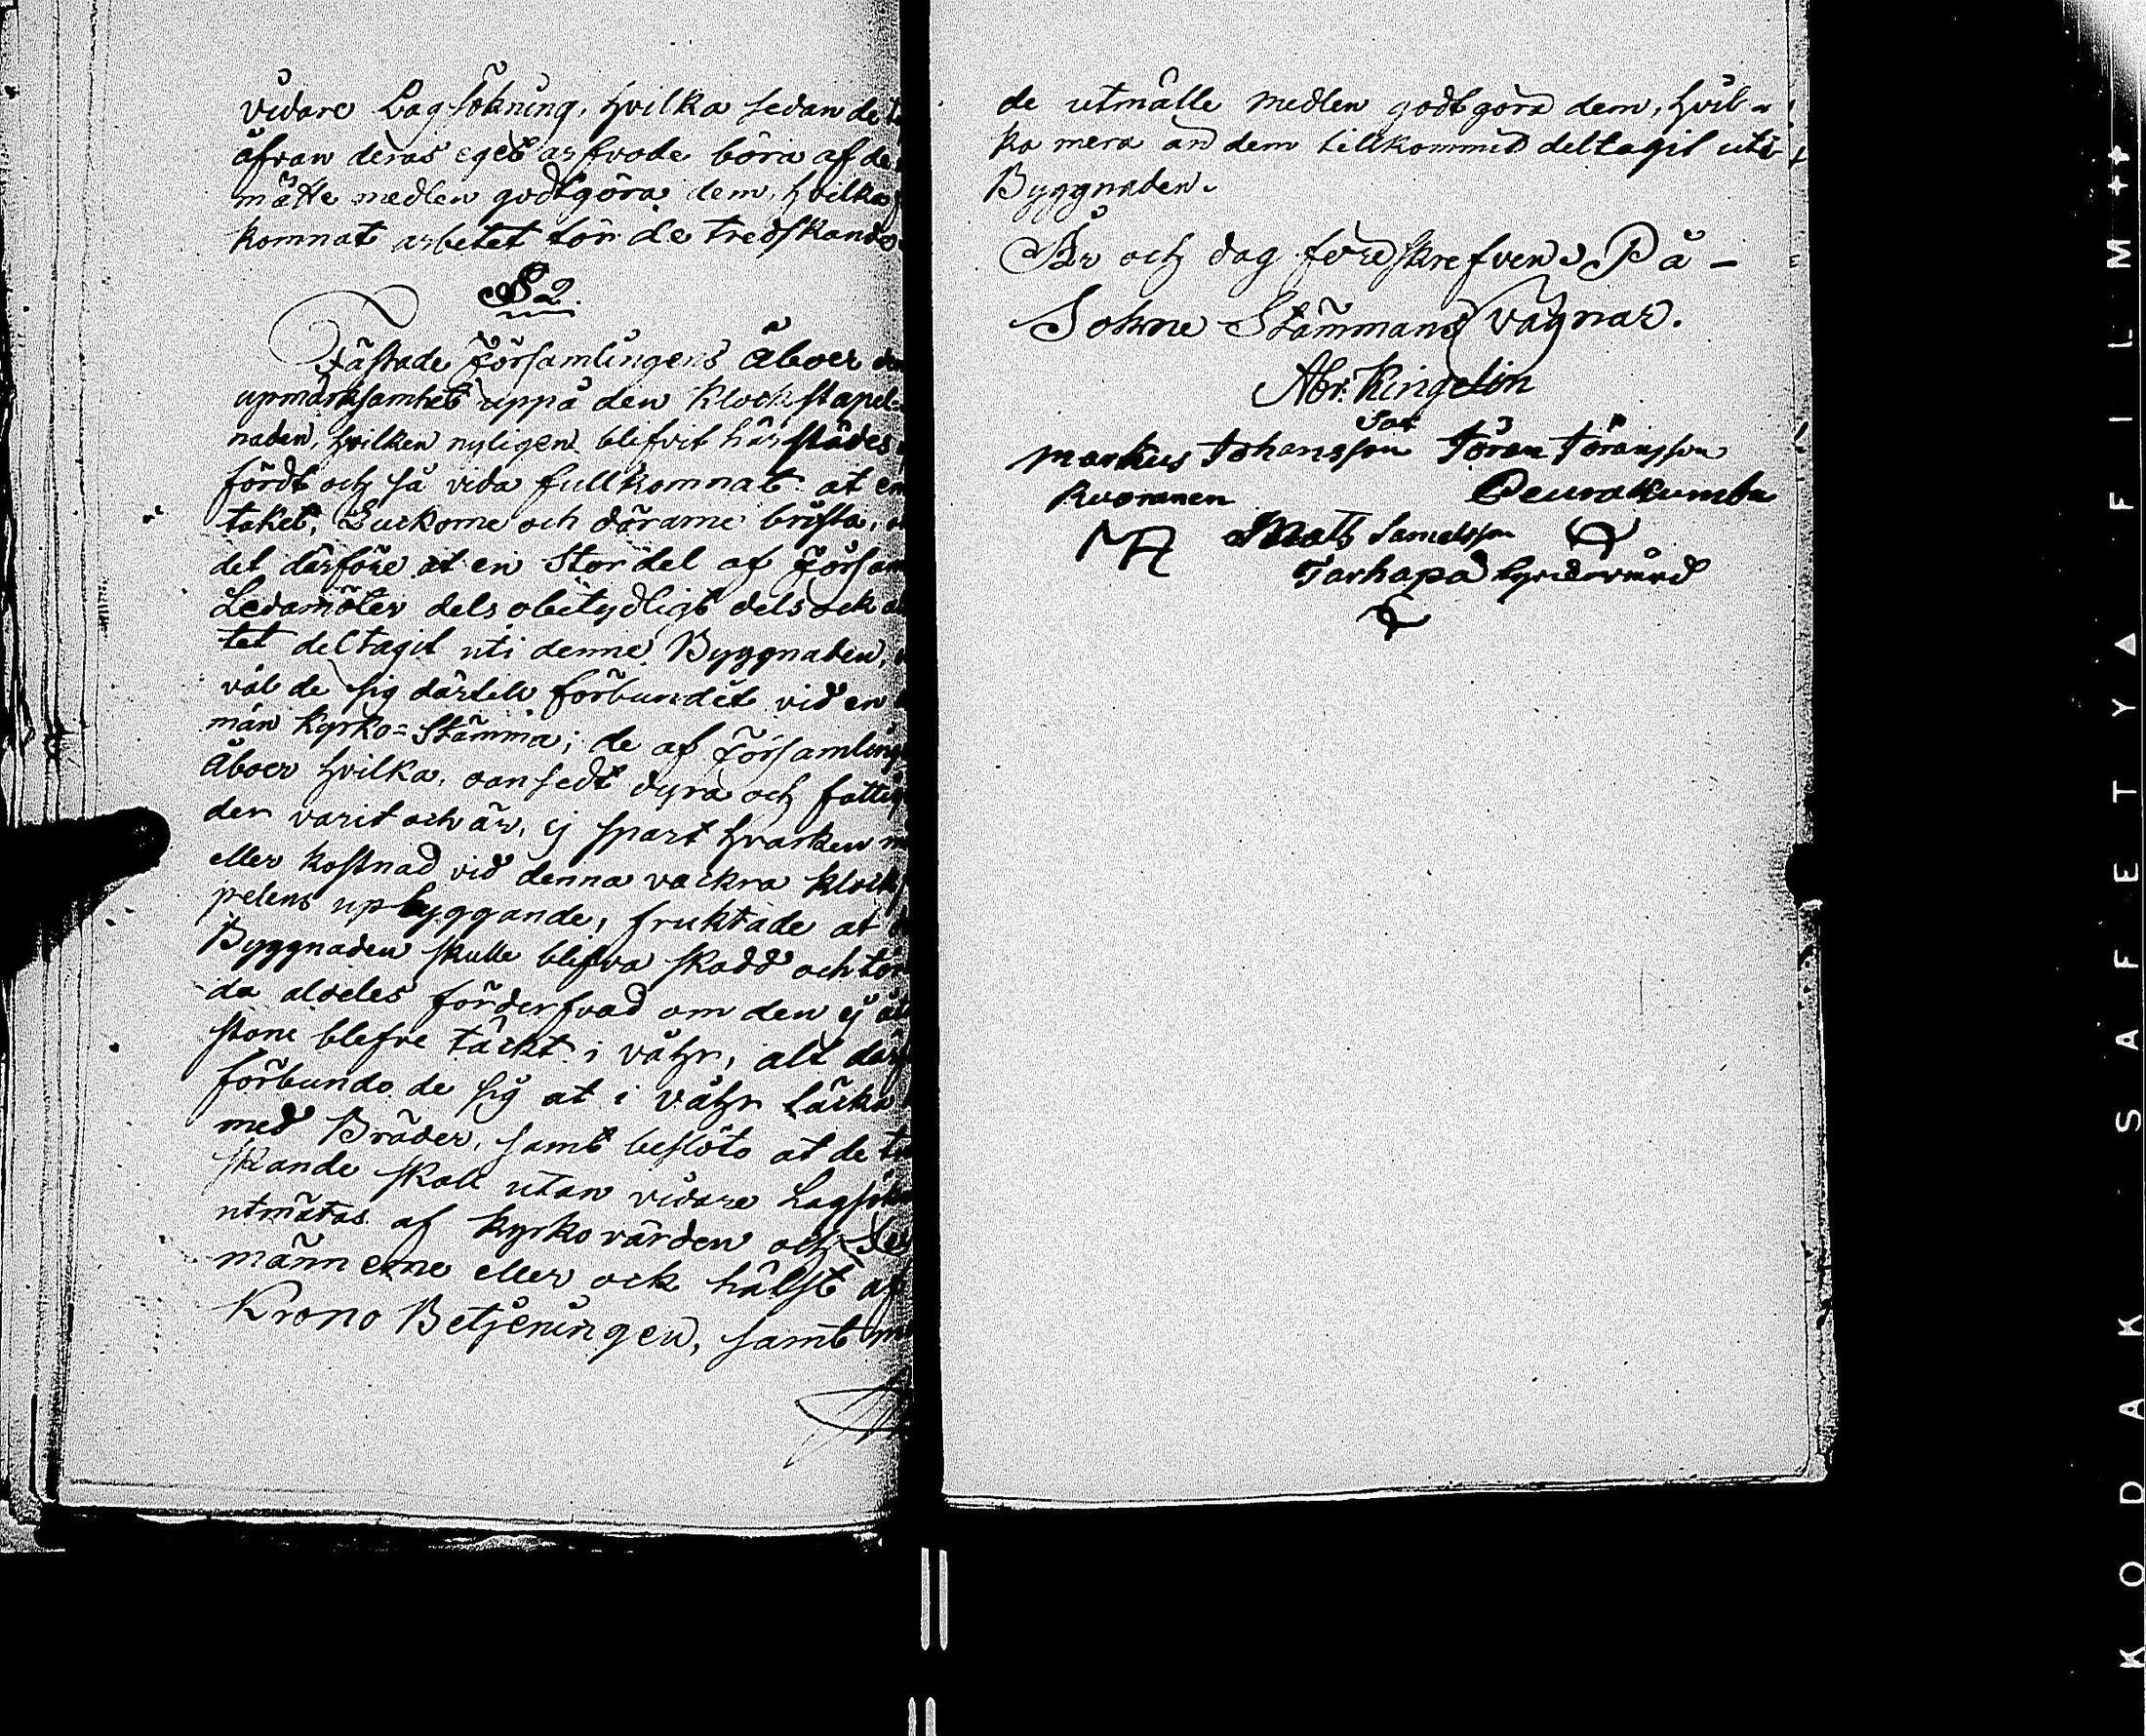 vidare Lagsökning, hvilka sedan de
åfvan deras eget arfvode böra af de
mätte medlen godtgöra dem, hvilka
komnat arbetet för de tredskande
§ 2
Fästade Församlingens Åboer
upmärksamhet uppå den Klockstapel-
naden, hvilken nyligen blifvit härstädes
fördt och så vida fullkomnat at
taket, Luckorne och dörarne brista,
det därföre at en Stor del af Försam
Ledamöter dels obetydligt dels ock
tet deltagit uti denne Byggnaden,
väl de sig därtill förbundet vid en
män Kyrko-Stämma; de af Församling
Åboer hvilka, oansedt dyra och fattig
der varit och är, ej spart hvarken
eller kostnad vid denna vackra klock
pelens upbyggande, fruktade at
Byggnaden skulle blifva skadd och
da aldeles förderfvad om den ej åt
stone blefve täckt i våhr, alt där
förbundo de sig at i våhr täcka
med Bräder, samt beslöto at de
skande skall utan vidare Lagsökn
utmätas af kyrkovärden och
männerne eller ock hälst af
Krono Betjeningen, samt
de utmätte medlen godtgöra dem, hvil-
ka mera än dem tillkommit deltagit uti
Byggnaden.
År och dag föreskrefven. På
Sokne Stämmans vägnar.
Abr. Ringelin
Markus Johansson Jöran Jöransson
Ruoranen Peurakumbu
Matts Samelsson
Tarhapä
KODAK SAFETY FILM